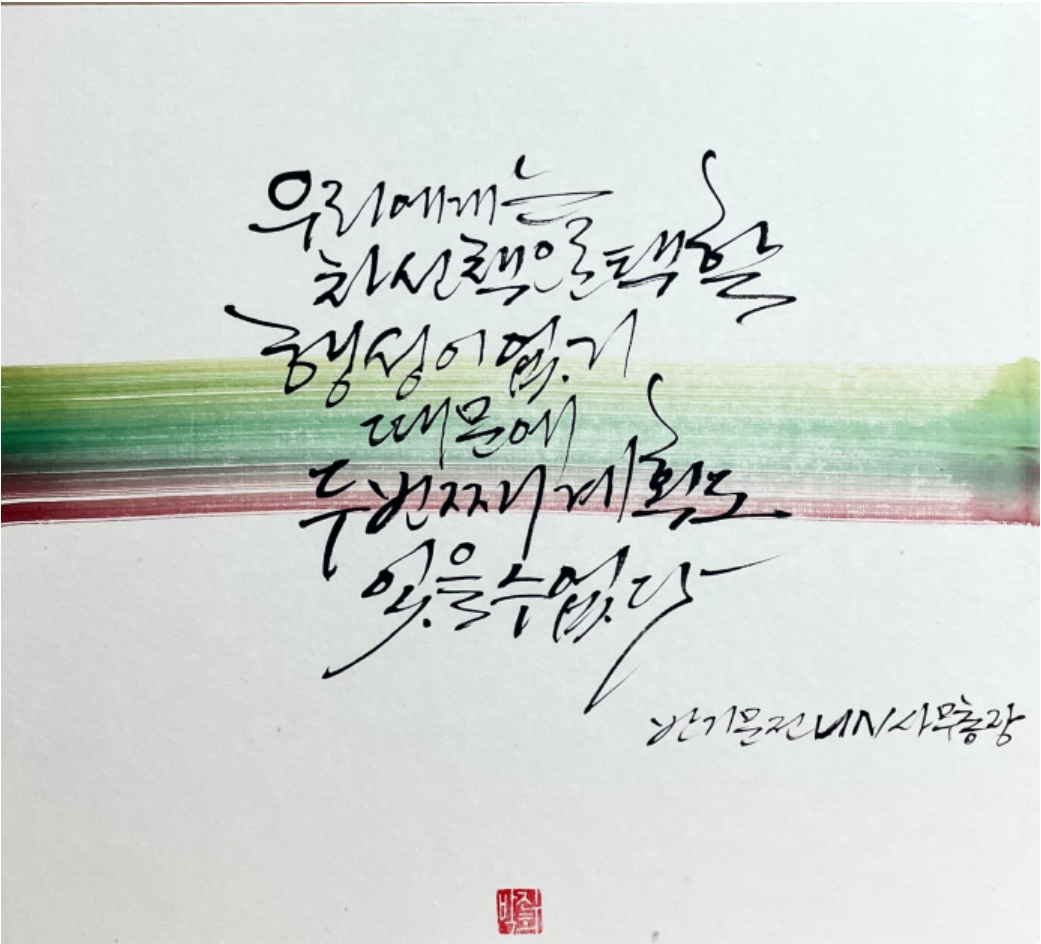 우리에게는
차선책으로 택할
행성이 없기
때문에
두번째 계획도
있을 수 없다
반기문 전 UN 사무총장